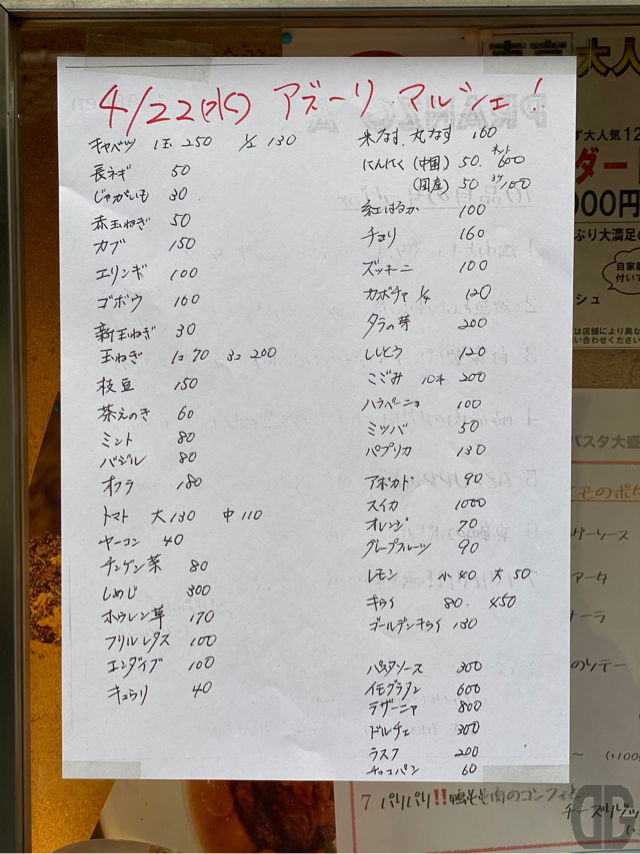 4/22(水) アズーリ マルシェ!
キャベツ 1玉 250 1/2 130
長ネギ 50
じゃがいも 30
赤玉ねぎ 50
カブ 150
エリンギ 100
ゴボウ 160
新玉ねぎ 30
玉ねぎ 1コ 70 3コ 200
枝豆 150
茶えのき 60
ミント 80
バジル 80
オクラ 180
トマト 大130 中110
ヤーコン 40
チンゲン菜 80
しめじ 300
ホウレン草 170
フリルレタス 100
エンダイブ 100
キュウリ 40
米なす、丸なす 160
にんにく (中国) 50. ネット600
(国産) 50 3ケ100
紅はるか 100
チコリ 160
ズッキーニ 100
カボチャ 1/4 120
タラの芽 200
ししとう 120
こごみ 10本 200
ハラペーニョ 100
ミツバ 50
パプリカ 130
アボカド 90
スイカ 1000
オレンジ 70
グレープフルーツ 90
レモン 小40 大50
キウイ 80. 450
ゴールデンキウイ 130
パスタソース 300
イモグラタン 600
ラザーニャ 800
ドルチェ 300
ラスク 200
チョコパン 60
大人
ず大人気12
ダー
000円
ぶり大満足の
自家製
付いて
シュ
は店舗により異な
い合わせください
パスタ大盛
モのポピ
ゲーソース
アータ
ーラ
のリテー
〜 (+100
7 パリパリ!!鴨もも肉のコンフィと
チーズリゾッ